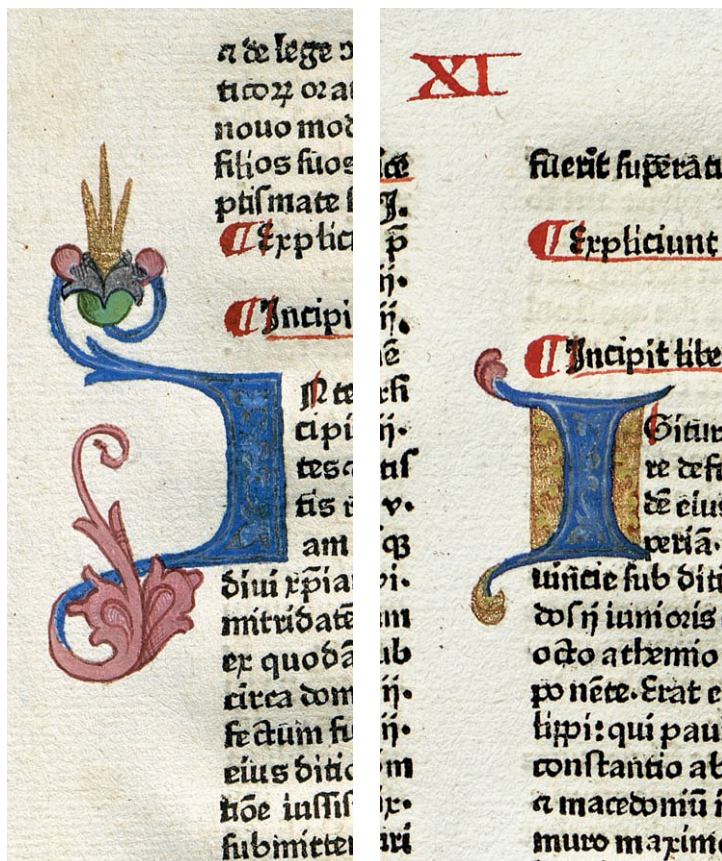 ⁊ de lege
ticoꝝ orat
nouo mod
filios suos
ptismate
Explici
Incipi
IN te
cipi
tes
tis
am
diui xp̄ia
mitridatē
ex quodā
circa dom
fectum fu
eius ditio
tiōe iussis
submitter
XI
J.
p̄
ij.
ij.
nē
ij.
v.
qꝫ
vi.
um
ub
ij.
ij.
m
ix.
uri
fuerīt supērati
Expliciunt
Incipit libe
IGitur
re defu
dē eius
periā.
uincie sub diti
dos ij iunioris
octo athemio
ponēte. Erat e
lippi: qui pau
constantio ab
⁊ macedoniū
muro maxim